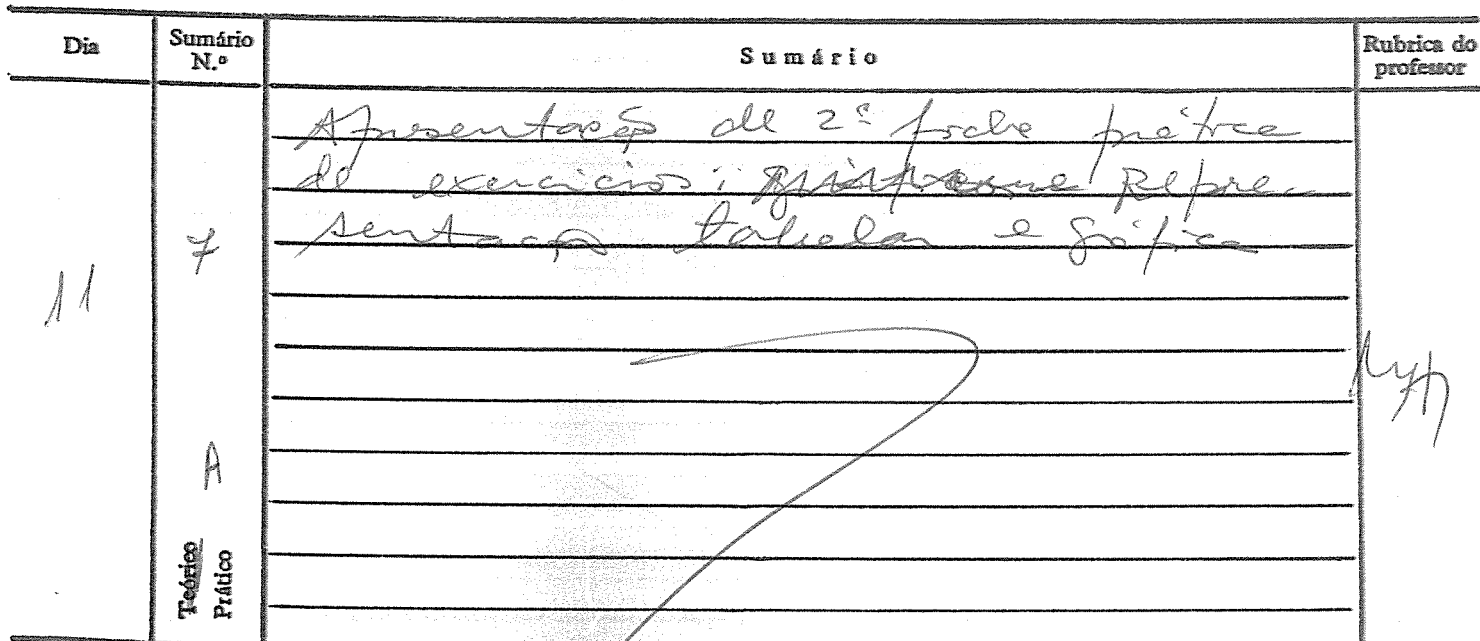 Dia
Sumário N.º
Sumário
Rubrica do professor
11
7
A
Teórico
Prático
Apresentação de 2ª ficha prática
de exercícios: Repre-
sentação tabelar e gráfica